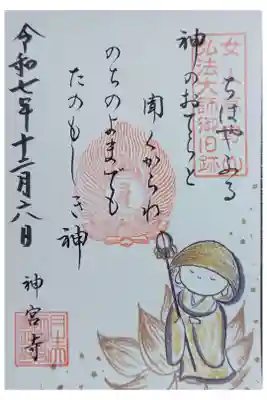 弘法大師御旧跡
ちはやふる
神のおてらと
聞くからわ
のちのよまでも
たのもしき神
令和七年十二月六日
神宮寺